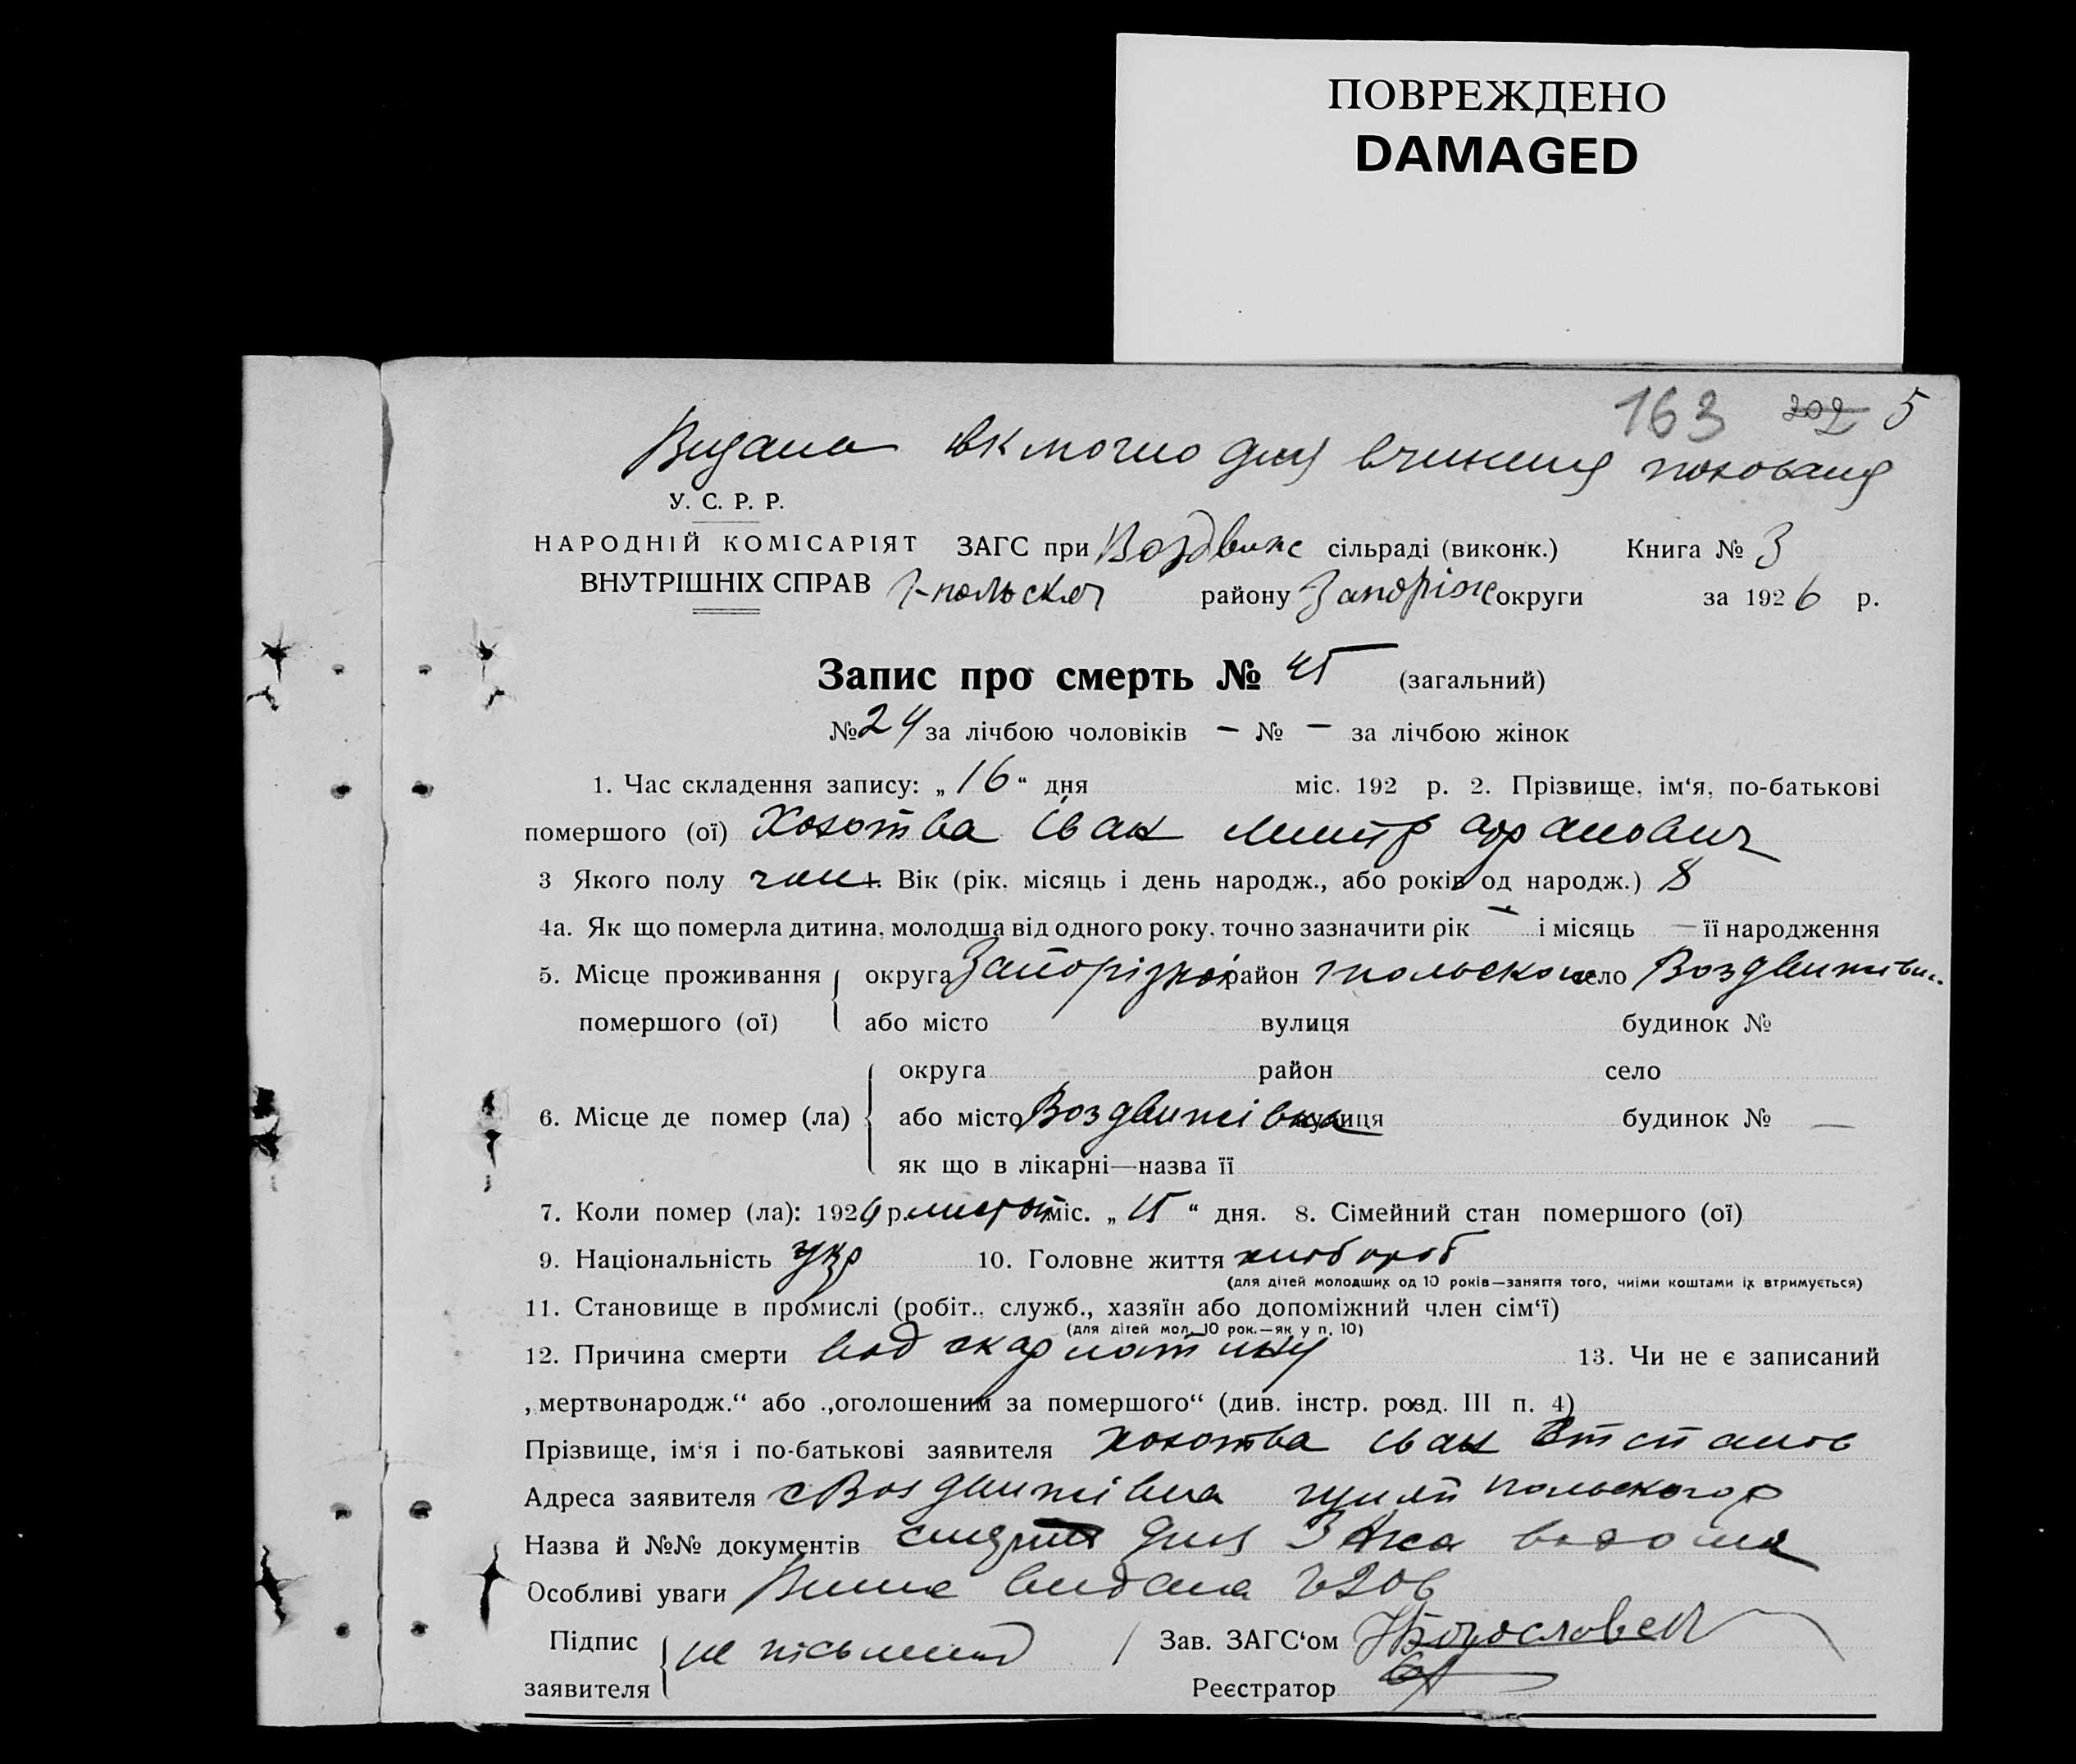 ПОВРЕЖДЕНО
DAMAGED
163 202 5
Видана для вчинення поховання
У. С. Р. Р.
НАРОДНІЙ КОМІСАРІЯТ ЗАГС при Воздвиж сільраді (виконк.) Книга № 3
ВНУТРІШНІХ СПРАВ району Запоріж округи за 1926 р.
Запис про смерть № 45 (загальний)
№ 24 за лічбою чоловіків — № — за лічбою жінок
1. Час складення запису: „16“ дня міс. 192 р. 2. Прізвище, ім‘я, по-батькові
помершого (ої) Іван
3 Якого полу чол 4. Вік (рік, місяць і день народж., або років од народж.) 8
4а. Як що померла дитина, молодша від одного року, точно зазначити рік — і місяць — її народження
5. Місце проживання округа Запорізької район село
помершого (ої) або місто вулиця будинок №
округа район село
6. Місце де помер (ла) або місто Воздвижівка вулиця будинок № —
як що в лікарні—назва її
7. Коли помер (ла): 1926 р. міс. „15“ дня. 8. Сімейний стан помершого (ої)
9. Національність укр 10. Головне життя хлібороб
(для дітей молодших од 10 років—заняття того, чиїми коштами їх втримується)
11. Становище в промислі (робіт., служб., хазяїн або допоміжний член сім‘ї)
(для дітей мол. 10 рок.—як у п. 10)
12. Причина смерти від скарлатини 13. Чи не є записаний
„мертвонародж.“ або „оголошеним за померщого“ (див. інстр. розд. III п. 4)
Прізвище, ім‘я і по-батькові заявителя Іван
Адреса заявителя с Воздвижівка польского р
Назва й №№ документів для
Особливі уваги видана
Підпис не пісьмений Зав. ЗАГС‘ом
заявителя Реєстратор